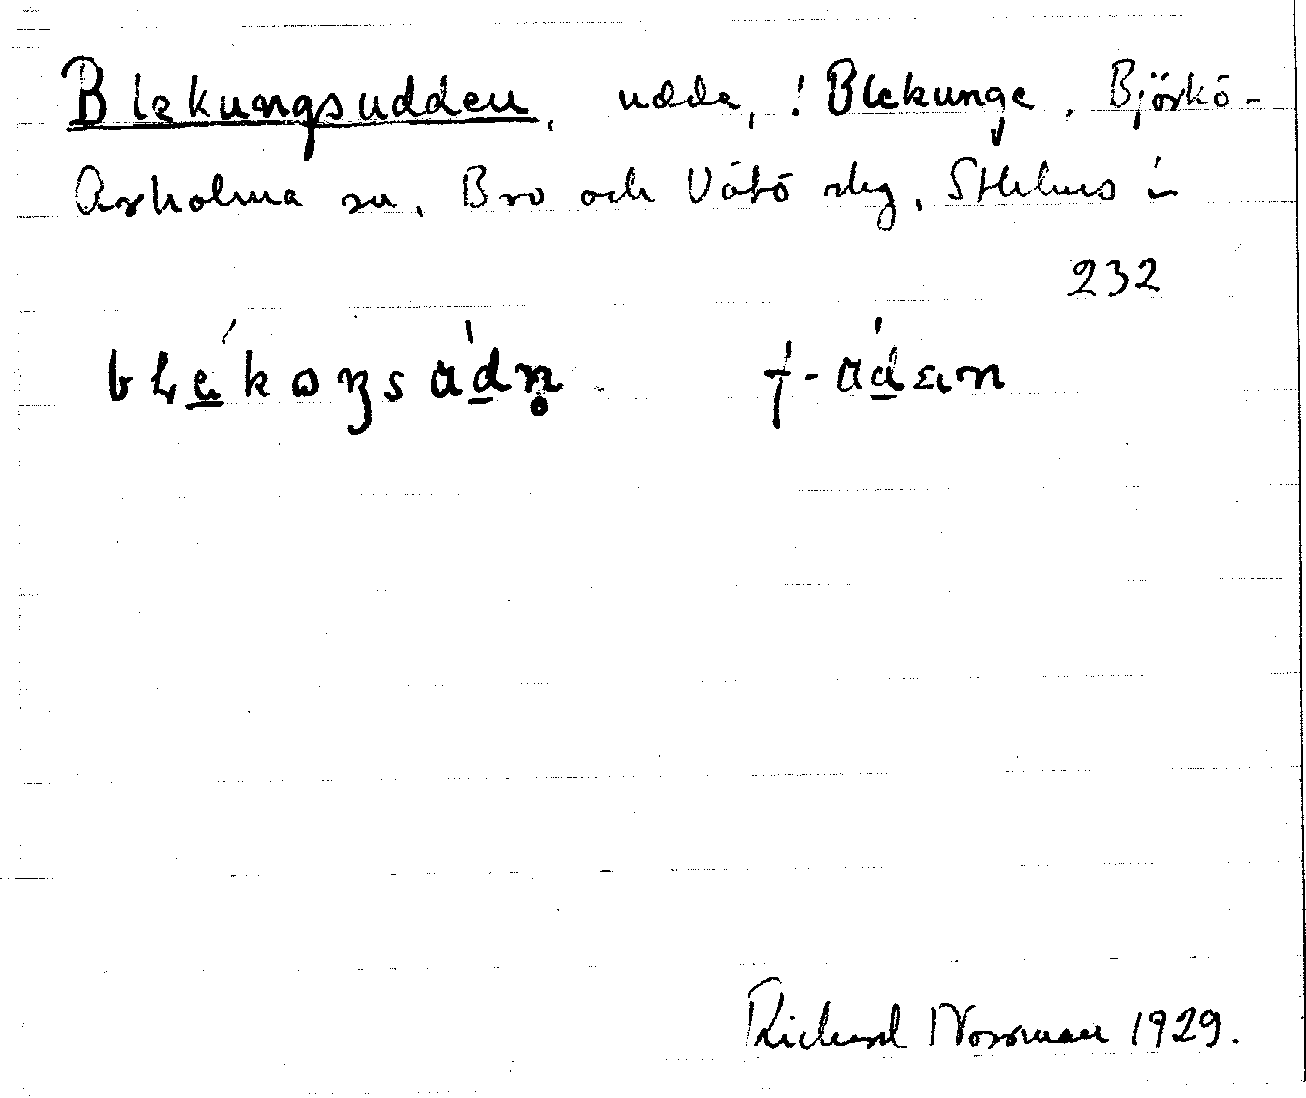 Blekungsudden, udde, ! Blekunge, Björkö-
Arholma sn, Bro och Vätö slg, Sthlms l.
232
Richard Norrman 1929.